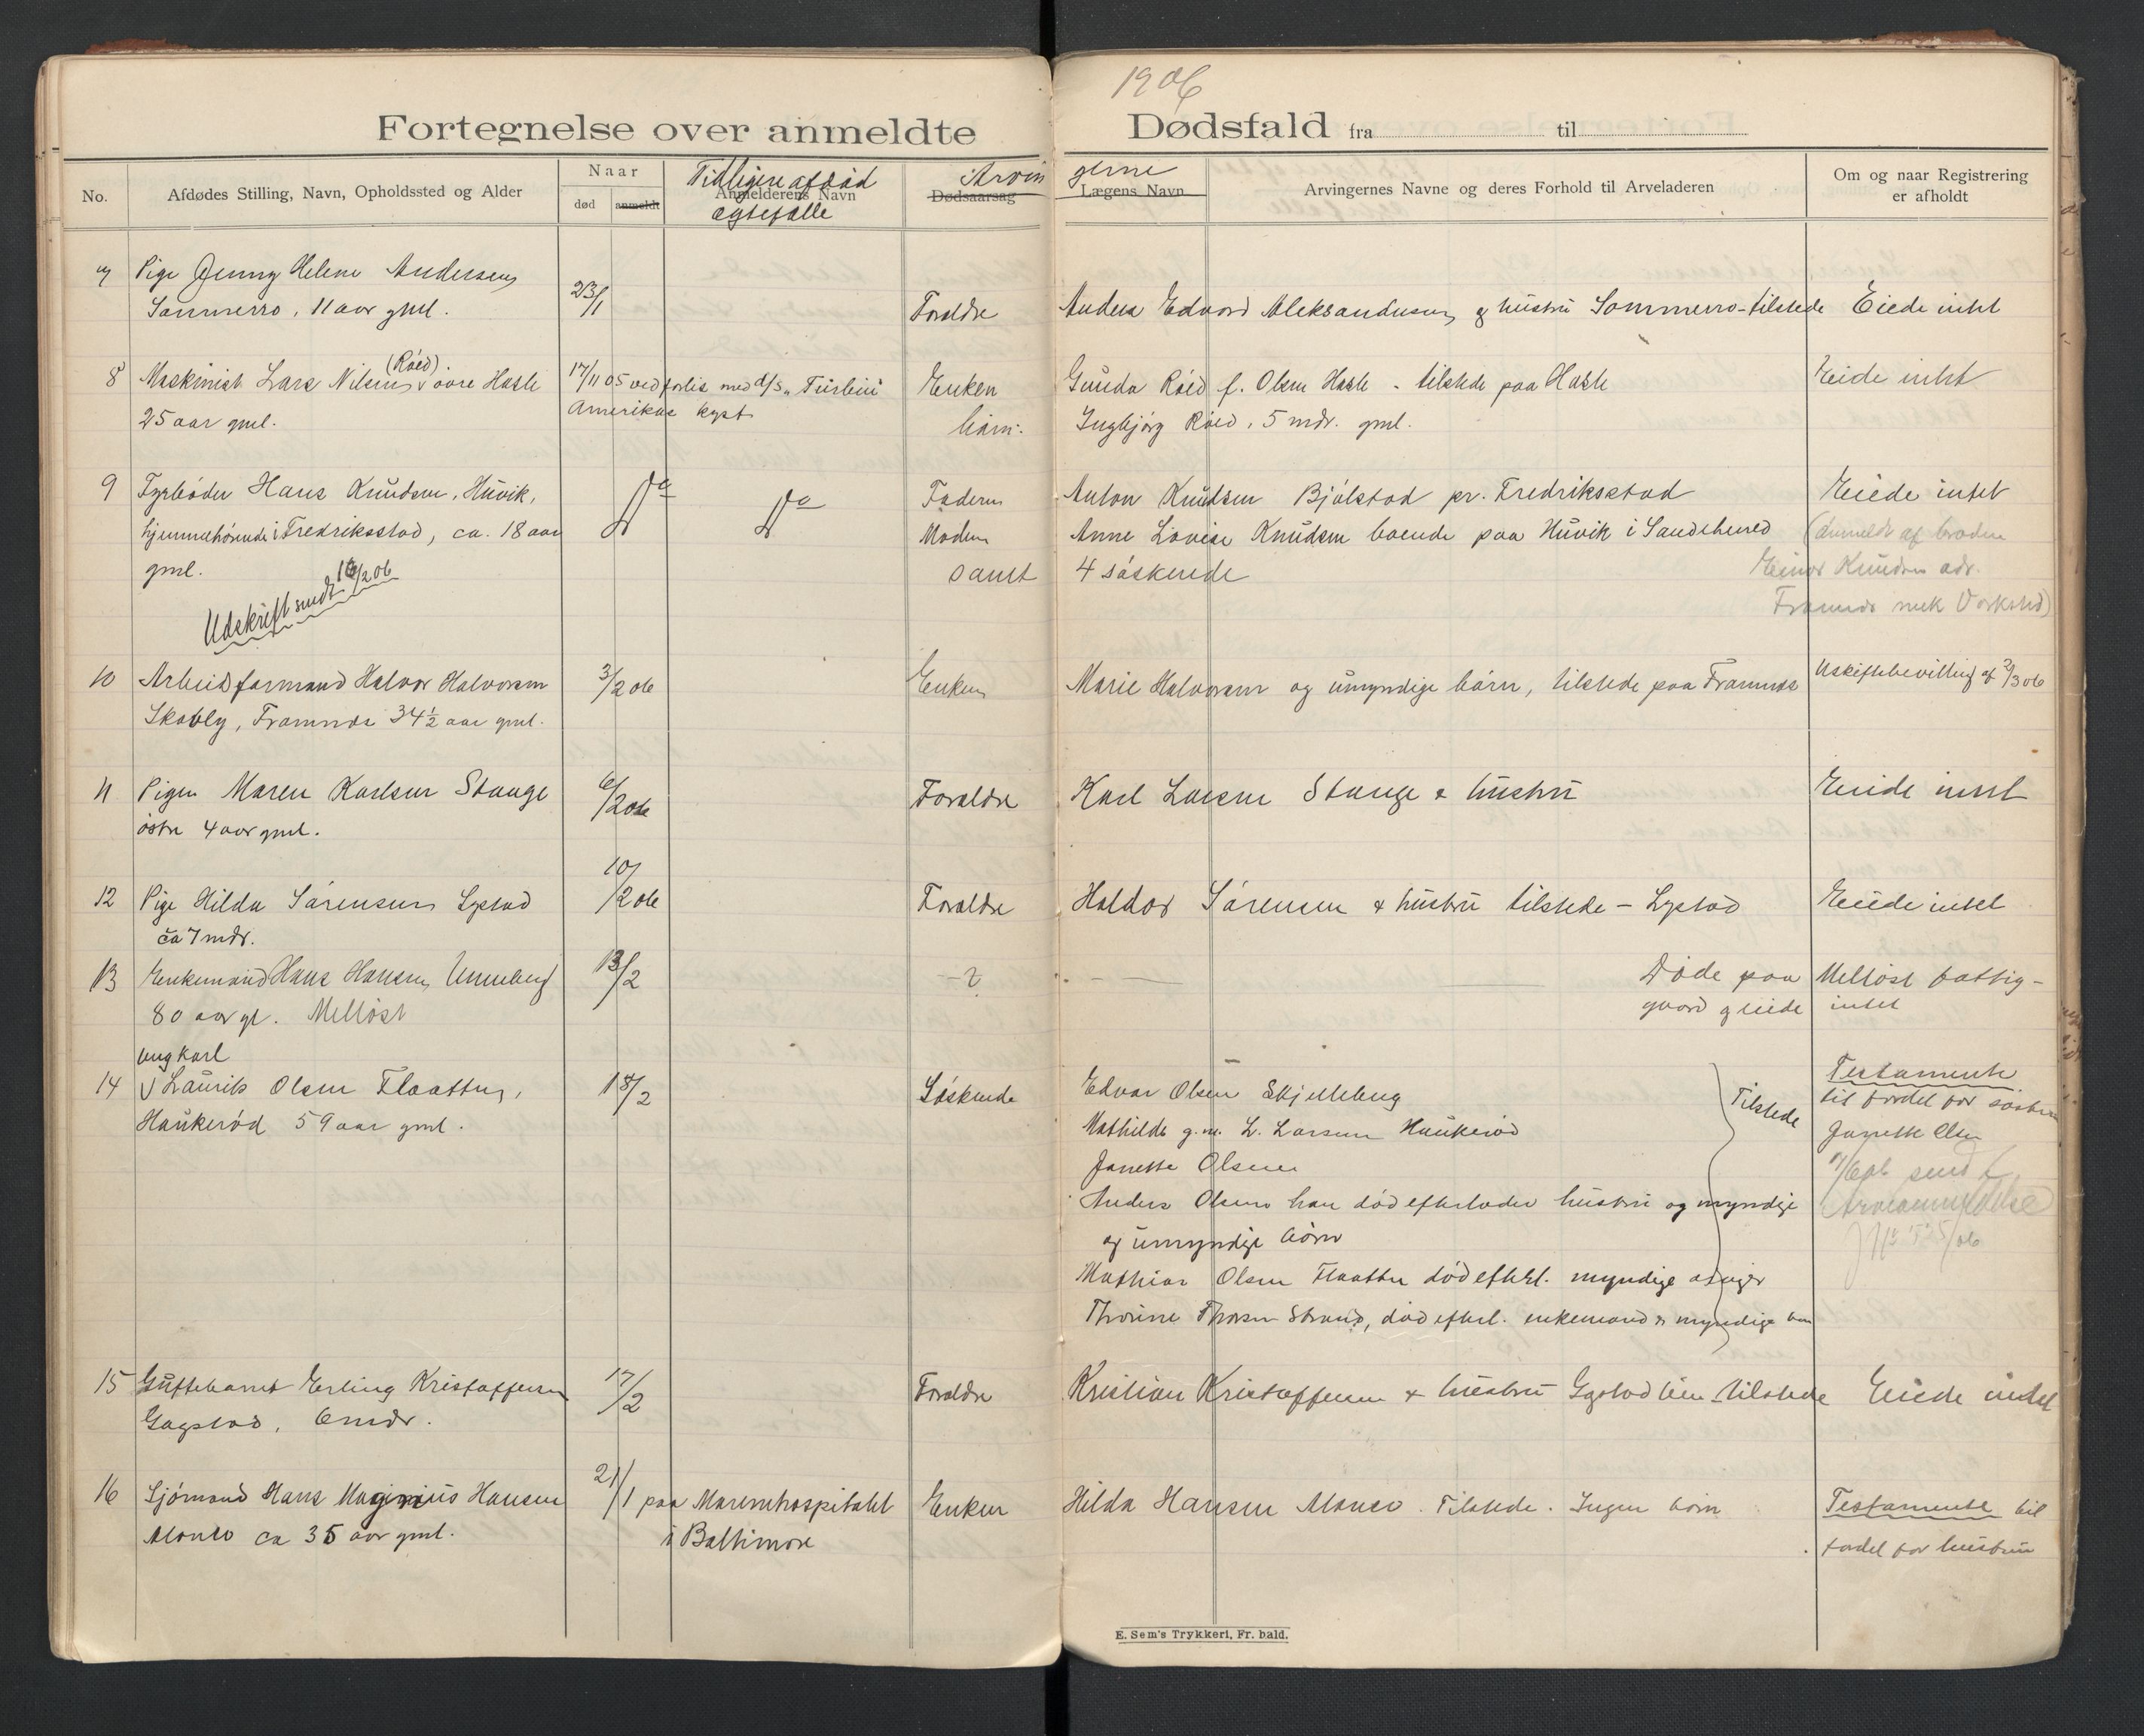 1906
Fortegnelse over anmeldte Dødsfald fra til
No.
Afdødes Stilling, Navn, Opholdssted og Alder
Naar
død
anmeldt
Tidligere afdød
Anmelderens Navn
ægtefælle
Arvingerne
Dødsaarsag
Lægens Navn
Arvingernes Navne og deres Forhold til Arveladeren
Om og naar Registrering
er afholdt
7 Pige Jenny Helene Andersen
Sommerro, 11 aar gml. 23/1 Forældre Anders Edvard Aleksandersen og hustru Sommerro - tilstede Eiede intet
(Røed).
8 Maskinist Lars Nilsen øvre Hasle 17/11 05 ved forlis med d/s "Turbin" Enken Gunda Røed f. Olsen Hasle - tilstede paa Hasle Eiede intet
25 aar gml. Amerikas kyst børn. Ingbjørg Røed, 5 mdr. gml.
9 Fyrbøder Hans Knudsen, Huvik, Do Do Faderen Anton Knudsen Bjølstad pr. Fredriksstad Eiede intet
hjemmehørende i Fredriksstad, ca. 18 aar Moderen Anne Lovise Knudsen boende paa Huvik i Sandeherred (anmeldt af broderen
gml. samt 4 søskende Einar Knudsen adr.
Framnæs mek Værksted)
Udskrift sendt 16/2 06
10 Arbeidsformand Halvor Halvorsen 3/2 06 Enken Marie Halvorsen og umyndige børn, tilstede paa Framnæs Uskiftebevilling af 2/3 06
Skobly, Framnæs 34½ aar gml.
11 Pigen Maren Karlsen Stange 6/2 06 Forældre Karl Larsen Stange & hustru Eiede intet
østre 4 aar gml.
12 Pige Hilda Sørensen Lystad 10/2 06 Forældre Haldor Sørensen & hustru tilstede - Lystad Eiede intet
ca 7 mdr.
13 Enkemand Hans Hansen Unneberg 13/2 - ? - Døde paa Melløst fattig-
80 aar gl. Melløst gaard og eiede intet
ungkarl
14 Laurits Olsen Flaatten, 18/2 Søskende Edvar Olsen Skjelleberg Tilstede Testamente
Haukerød 59 aar gml. Mathilde g.m. L. Larsen Haukerød til fordel for søsteren
Janette Olsen Janette Olsen
Anders Olsen han død efterlader hustru og myndige sendt
og umyndige børn Arveanmeldelse
Mathias Olsen Flaatten død efterl. myndige arvinger
Thorine Thorsen Strand, død efterl. enkemand & myndige børn
15 Guttebarnet Erling Kristoffersen 17/2 Forældre Kristian Kristoffersen & hustru Gogstad lien - tilstede Eiede intet
Gogstad, 6 mdr.
16 Sjømand Hans Magnus Hansen 21/1 paa Marinehospitalet Enken Hilda Hansen Alonso. Tilstede. Ingen børn Testamente til
Alonso ca 35 aar gml. i Baltimore fordel for hustruen
E. Sem's Trykkeri, Fr.hald.